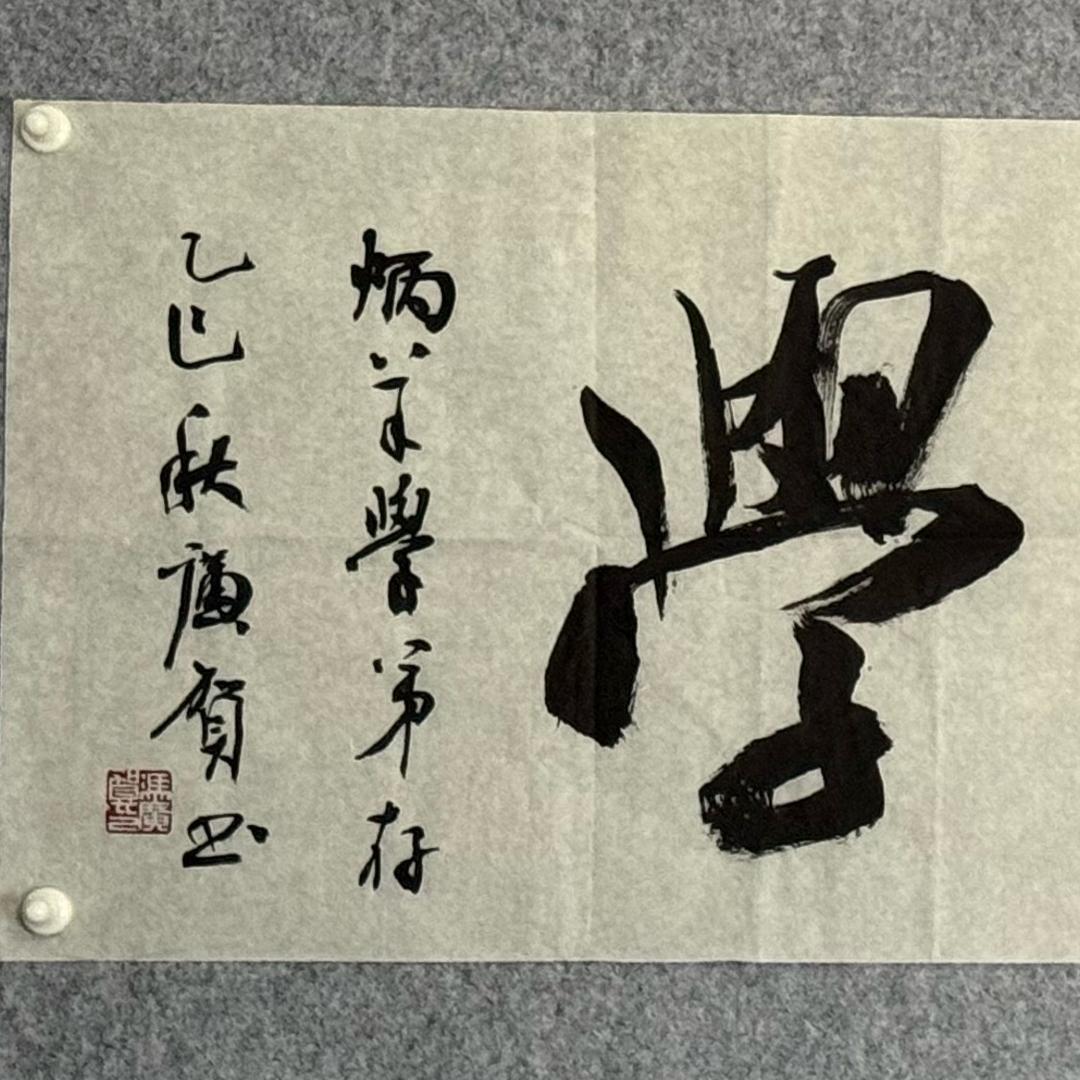 學
炳學弟存
乙巳秋廣賀书